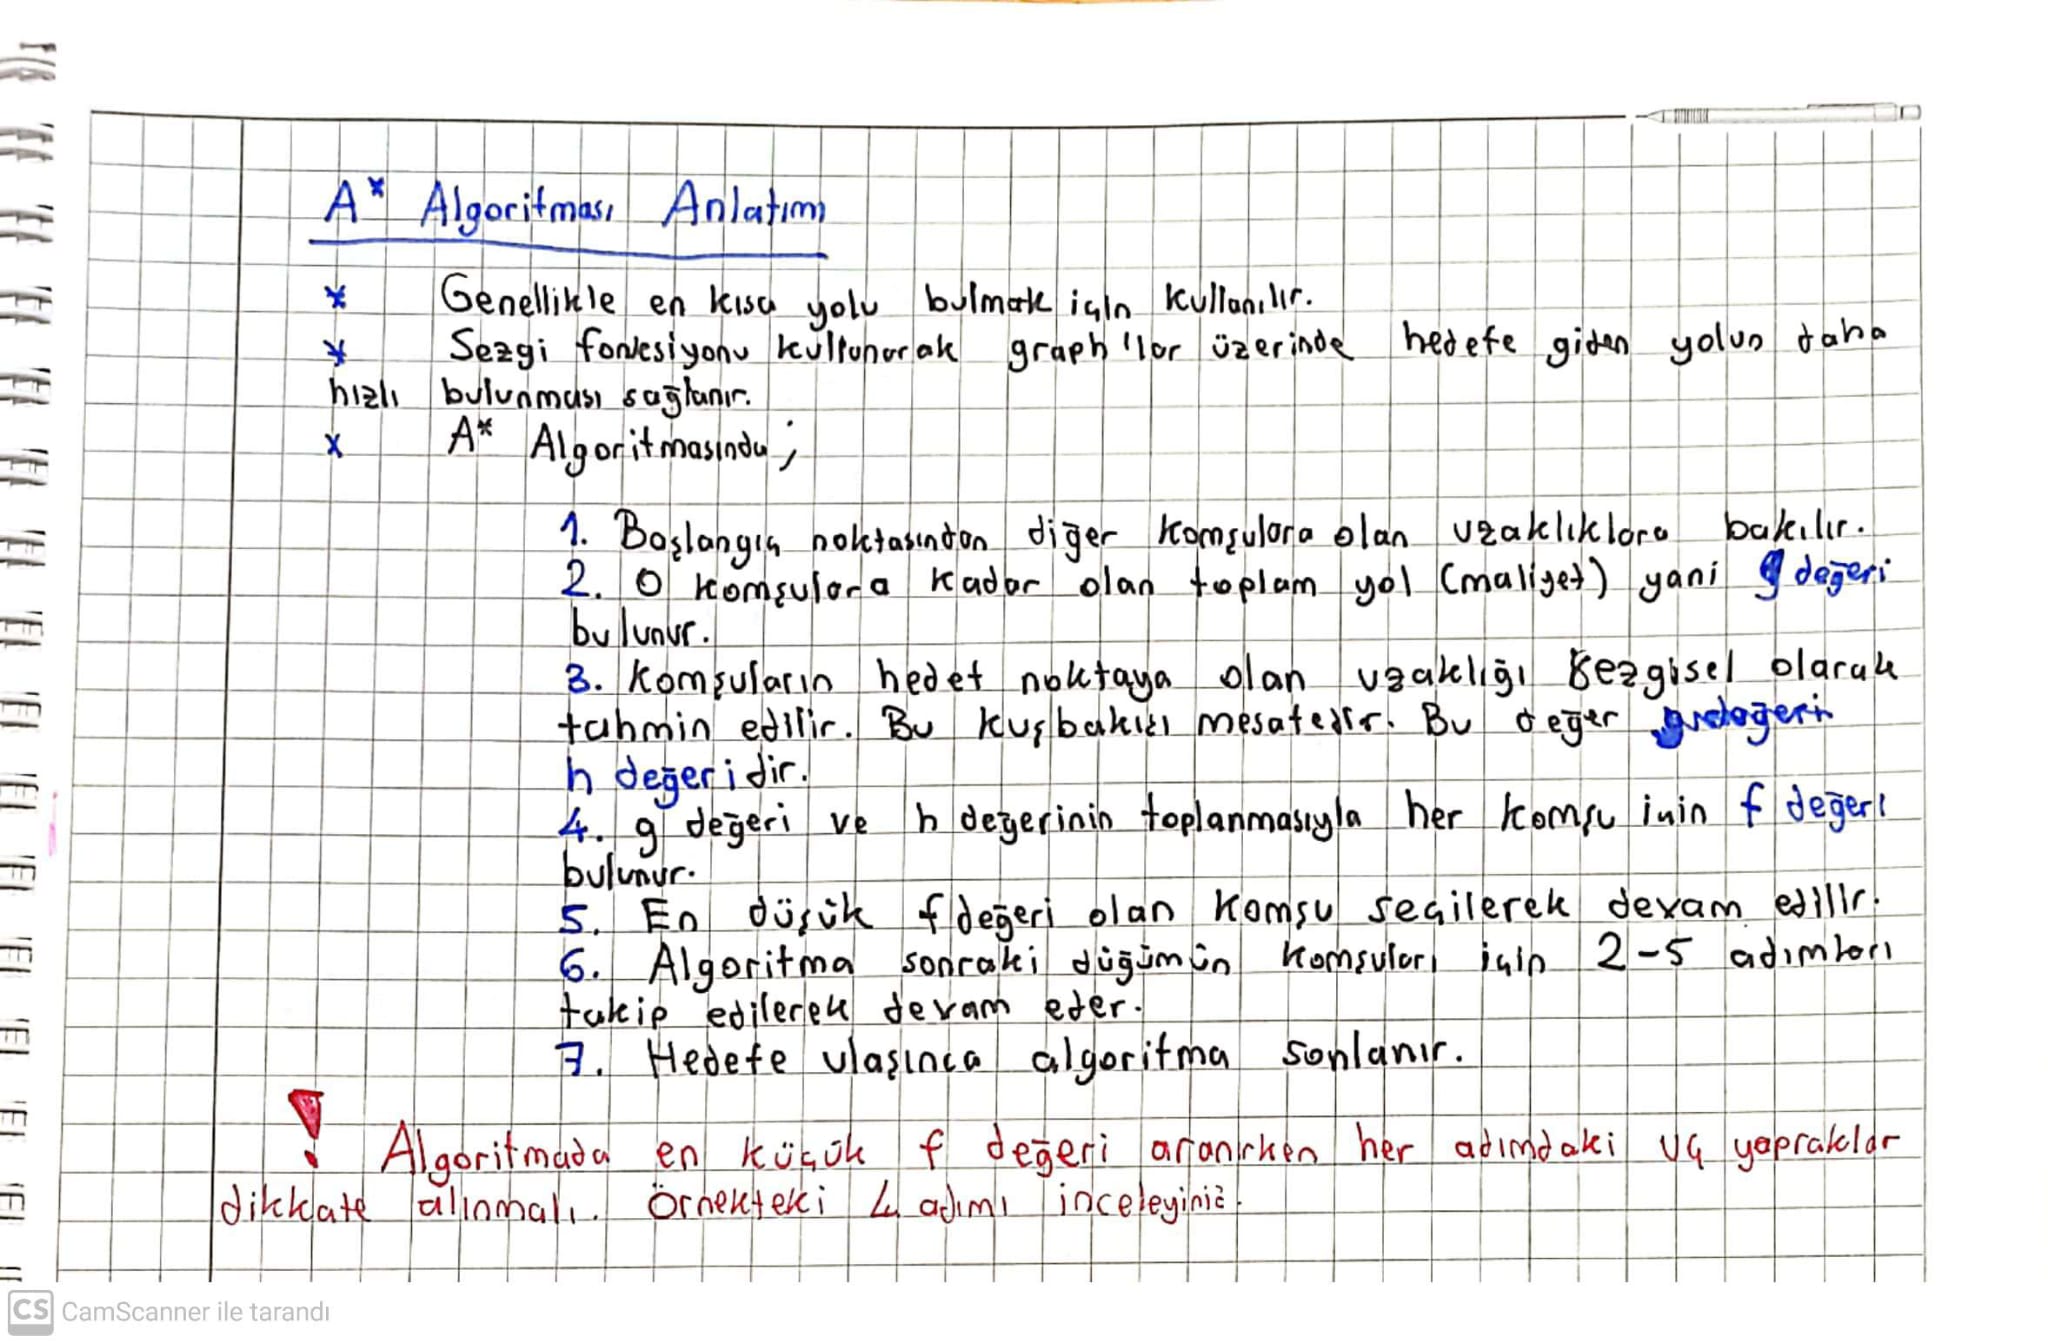 A* Algoritması Anlatımı
* Genellikle en kısa yolu bulmak için kullanılır.
* Sezgi fonksiyonu kullanarak graph'lar üzerinde hedefe giden yolun daha
hızlı bulunması sağlanır.
x A* Algoritmasında;
1. Başlangıç noktasından diğer komşulara olan uzaklıklara bakılır.
2. O komşulara kadar olan toplam yol (maliyet) yani g değeri
bulunur.
3. Komşuların hedef noktaya olan uzaklığı sezgisel olarak
tahmin edilir. Bu kuşbakışı mesafedir. Bu değer
h değeridir.
4. g değeri ve h değerinin toplanmasıyla her komşu için f değeri
bulunur.
5. En düşük f değeri olan komşu seçilerek devam edilir.
6. Algoritma sonraki düğümün komşuları için 2-5 adımları
takip edilerek devam eder.
7. Hedefe ulaşınca algoritma sonlanır.
! Algoritmada en küçük f değeri aranırken her adımdaki uç yapraklar
dikkate alınmalı. Örnekteki 4 adımı inceleyiniz.
CS CamScanner ile tarandı